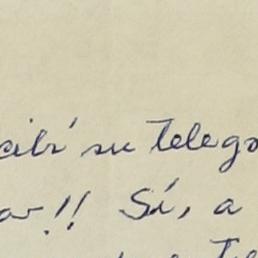 cibí su telego
ar!! Sí, a